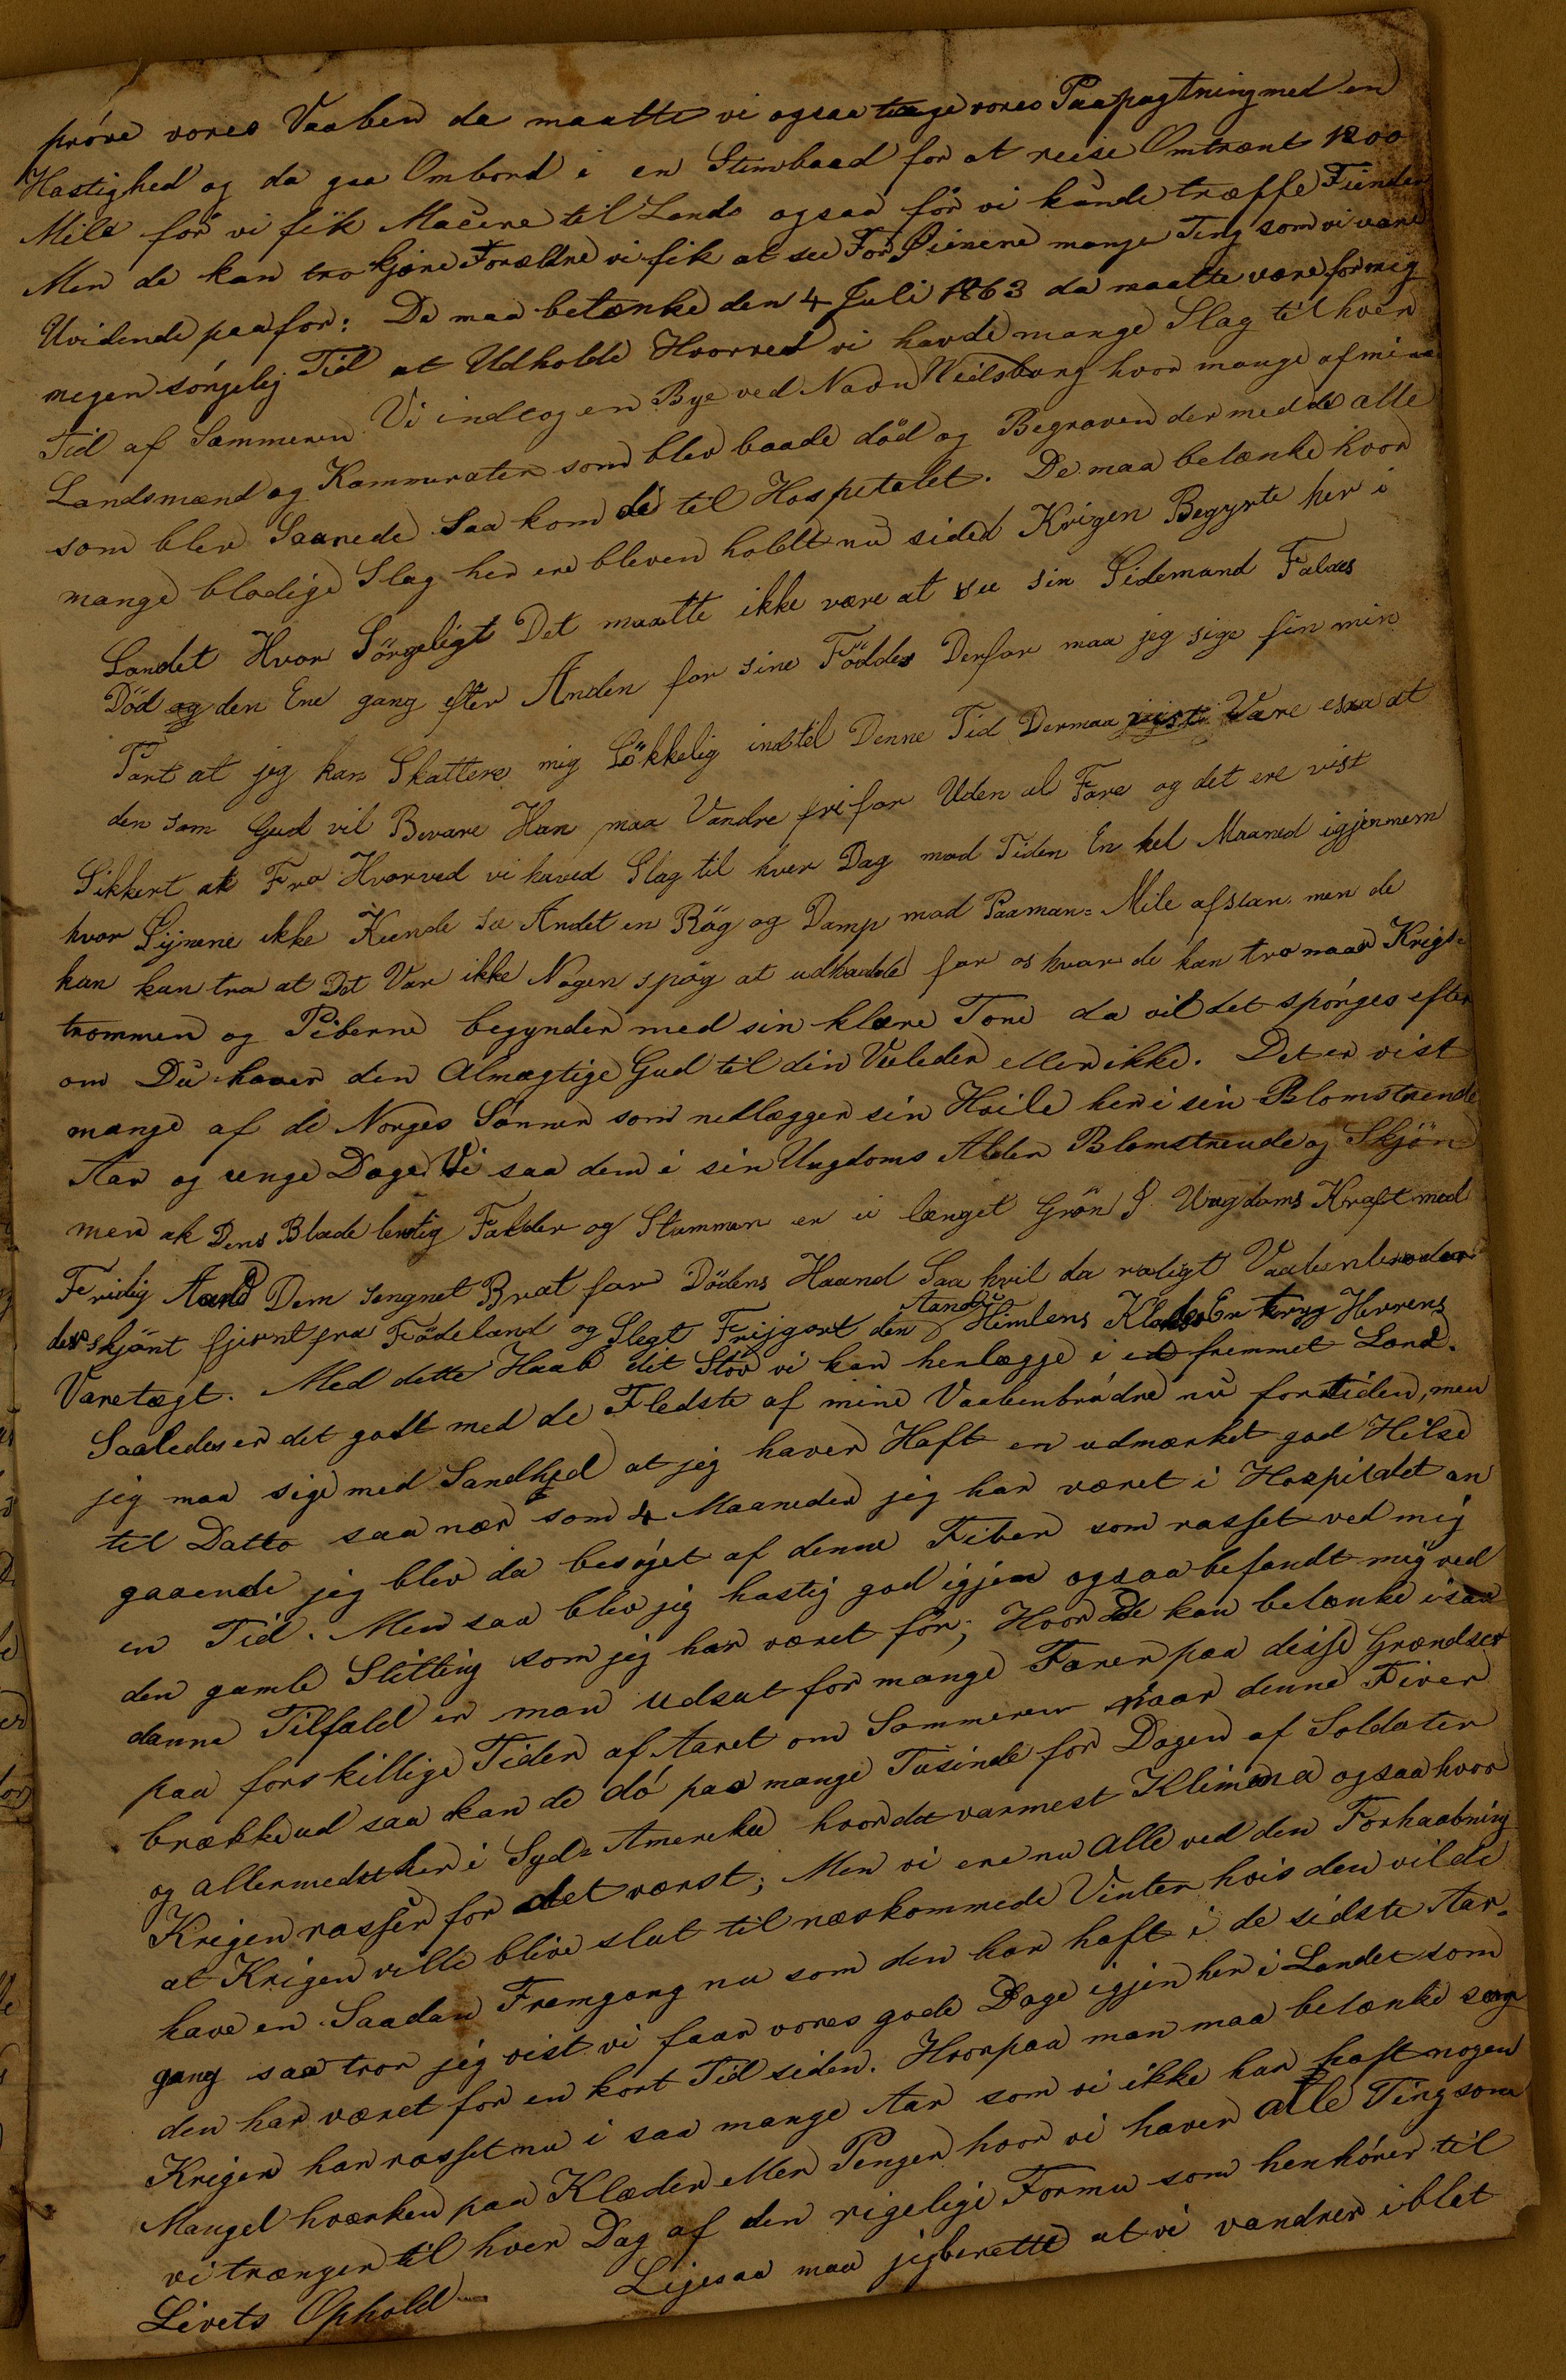 pröve vores Vaaben da maatte vi ogsaa tage vores Paapagtning med en
Hastighed og da gaa Ombord i en Stimbaad for at reise Omtrent 1200
Mile för vi fik Macere til Lands ogsaa för vi kunde træffe Fiender
Men de kan tro Kjære Forældre vi fik at see For Öienene mange Ting som vi vare
Uvidende paa for: De maa betænke den 4 Juli 1863 da maatte være for mig
megen sörgelig Tid at Udholde Hvorved vi havde mange Slag til hver
Tid af Sammeren Vi indtog en Bye ved Navn Weilsborg hvor mange af mine
Landsmænd og Kammerater som blev baade död og Begraven der med de alle
som blev Saarede Saa kom de til Hospetalet. De maa betænke hvor
mange blodige Slag her ere bleven holdt nu siden Krigen Begynte her i
Landet Hvor Sörgeligt Det maatte ikke være at see sin Sidemand Faldes
Död og den Ene gang efter Anden for sine Föddes Derfor maa jeg sige fin min
Part at jeg kan Skattere mig Lökkelig indtil Denne Tid Dermaa Være esaa at
den som Gud vil Bevare Han maa Vandre fri for Uden al Fare og det ere vist
Sikkert at Fra Hvorved vi haved Slag til hver Dag mod Tiden En hel Maaned igjennem
hvor Lijnene ikke Kunde se Andet en Rög og Damp mod Paaman= Mile afstan men de
kan kun tro at Det Var ikke Nogen spög at udholde for os hvor de kan tro naar Krigs=
trommen og Piberne begynder med sin klare Tone da vil det spörges efter
om Du haver den Almægtige Gud til din Veileder eller ikke. Det er vist
mange af de Norges Sönner som nedlægger sin Hvile her i sin Blomstrende
Aar og unge Dage Vi saa dem i sin Ungdoms Alder Blomstrende og Skjön
men ak Dens Blade lentig Falder og Stammen er ei længet Grön I Ungdoms Kraft med
Fridig Aand Dem sengnet Brat for Dödens Haand Saa hvil da roligt Vaabenbroder
der skjönt fjernt fra Födeland og Slegt Frijgort den Aand i Himlens Er tryg Herrens
Varetægt. Med dette Haab dit Stöv vi kan henlægge i et fremmet Land.
Saaledes er det godt med de Fledste af mine Vaabenbrödre nu for tiden, men
jeg maa sige med Sandhed at jeg haver Haft en udmærket god Hilse
til Datto saa nær som 4 Maaneder jeg har været i Hospitalet an
gaaende jeg blev da besöget af denne Fiber som rasset ved mig
en Tid. Men saa blev jeg hastig god igjen ogsaa befandt mig ved
den gamle Stilling som jeg har været för; Hvor De kan betænke i saa
danne Tilfald er man udsat for mange Farer paa disse Grændser
paa forskillige Tider af Aaret om Sammeren naar denne Fiver
brække ud saa kan de dö paa mange Tusinde for Dagen af Soldater
og allermedst her i Syd= Amereka hvor det varmest Klimma ogsaa hvor
Krigen rasser for det værst; Men vi ere nu Alle ved den Forhaabning
at Krigen ville blive slut til næskommede Vinter hvis den vilde
have en Saadan Fremgang nu som den har haft i de sidste Aar=
gang saa tror jeg vist vi faar vores gode Dage igjen her i Landet som
den har været for en kort Tid siden. Hvorpaa man maa betænke
Krigen har rasset nu i saa mange Aar som vi ikke har haft nogen
Mangel hværken paa Klæder eller Penger hvor vi haver alle Ting som
vi trænger til hver Dag af den rigelige Formu som henhörer til
Livets Ophold Ligesaa maa jeg berette at vi vandrer iblet